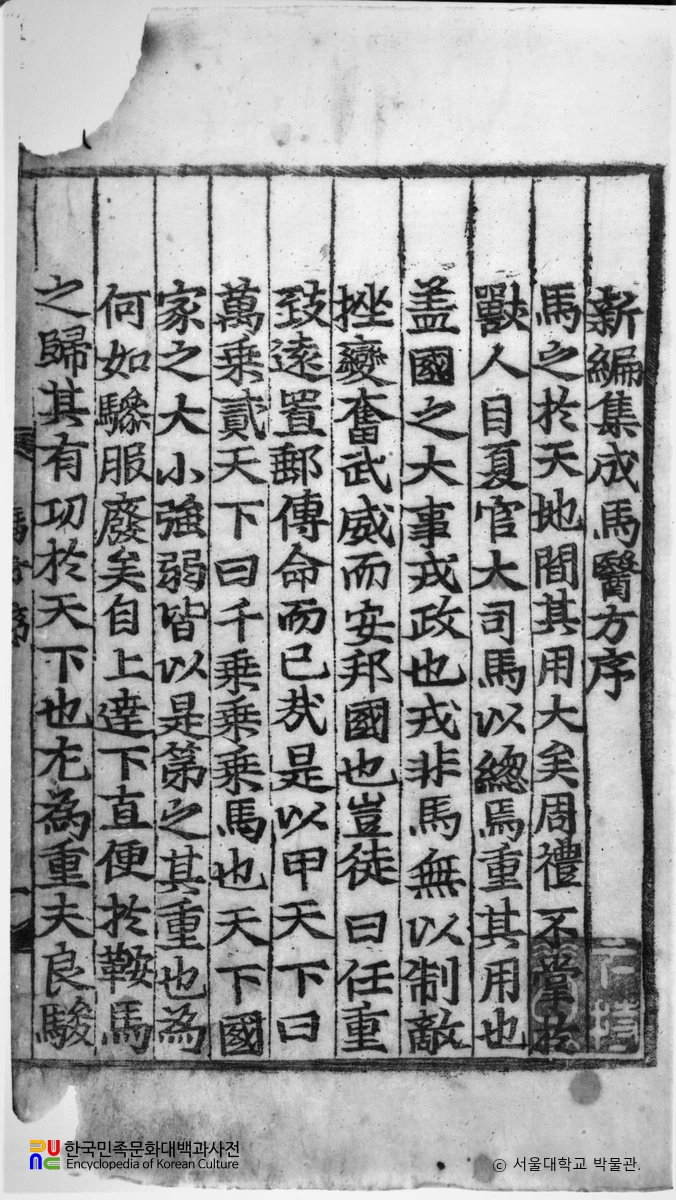 新編集成馬醫方序
馬之於天地間其用大矣周禮不掌於
獸人目夏官大司馬以總焉重其用也
盖國之大事戎政也戎非馬無以制敵
挫變奮武威而安邦國也豈徒曰任重
致遠置郵傳命而已㢤是以甲天下曰
萬乗貳天下曰千乗乗乗馬也天下國
家之大小強弱皆以是第之其重也為
何如驂服廢矣自上達下直便於鞍馬
之歸其有功於天下也尤為重夫良駿
한국민족문화대백과사전
Encyclopedia of Korean Culture
© 서울대학교 박물관.